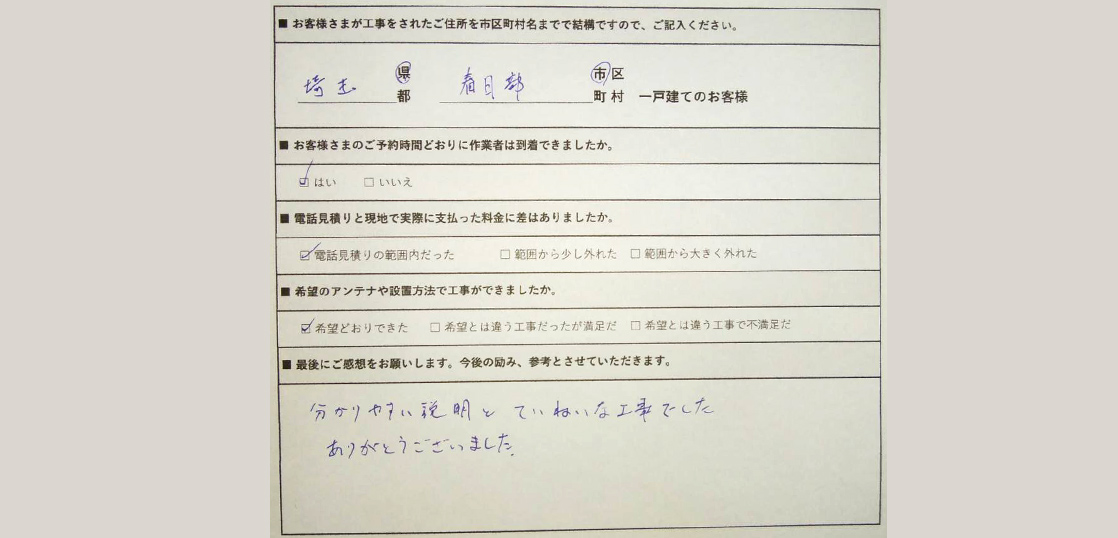 ■ お客様さまが工事をされたご住所を市区町村名までで結構ですので、ご記入ください。
埼玉 県 春日部 市区
都 町村 一戸建てのお客様
■ お客様さまのご予約時間どおりに作業者は到着できましたか。
☑ はい □ いいえ
■ 電話見積りと現地で実際に支払った料金に差はありましたか。
☑ 電話見積りの範囲内だった □ 範囲から少し外れた □ 範囲から大きく外れた
■ 希望のアンテナや設置方法で工事ができましたか。
☑ 希望どおりできた □ 希望とは違う工事だったが満足だ □ 希望とは違う工事で不満足だ
■ 最後にご感想をお願いします。今後の励み、参考とさせていただきます。
分かりやすい説明と ていねいな工事でした
ありがとうございました。